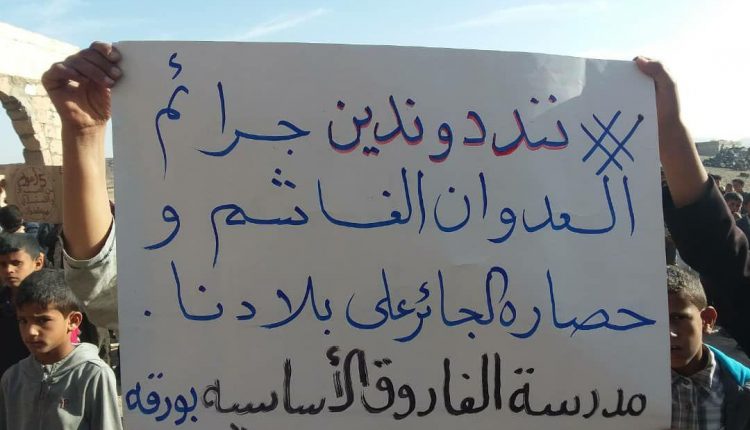 نندد وندين جرائم
العدوان الغاشم و
حصاره الجائر على بلادنا .
مدرسة الفاروق الأساسيه بورقه